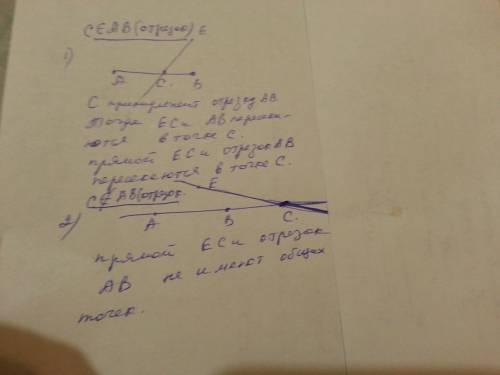 C∈AB (отрезок) E
1)
A C. B
C принадлежит отрезку AB
Тогда EC и AB пересек-
аются в точке C.
прямой EC и отрезок AB
пересекаются в точке C.
C∉AB (отрезок. E
2) A B C.
прямой EC и отрезок
AB не имеют общих
точек.